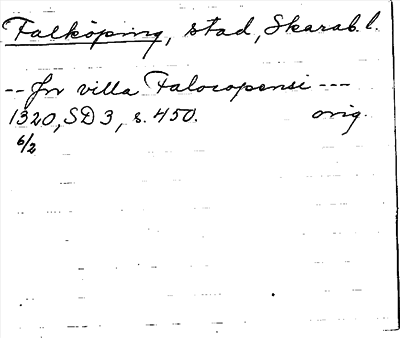 Falköping, stad, Skarab. l.
-- In villa Falocopensi ---
1320, SD 3, s. 450. orig.
6/2